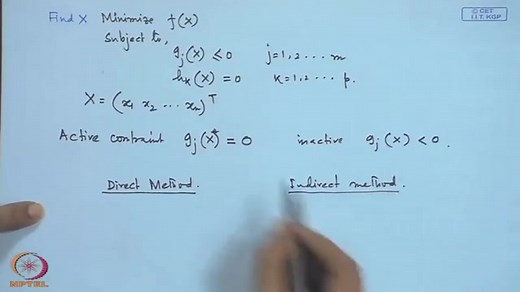 © CET
I.I.T. KGP
Find X Minimize f(X)
Subject to,
gj(X) ≤ 0 j=1,2 ⋯ m
hk(X) = 0 k=1,2 ⋯ p.
X = (x1 x2 ⋯ xn)ᵀ
Active constraint gj(X*) = 0 inactive gj(X) < 0.
Direct Method. Indirect method.
NPTEL